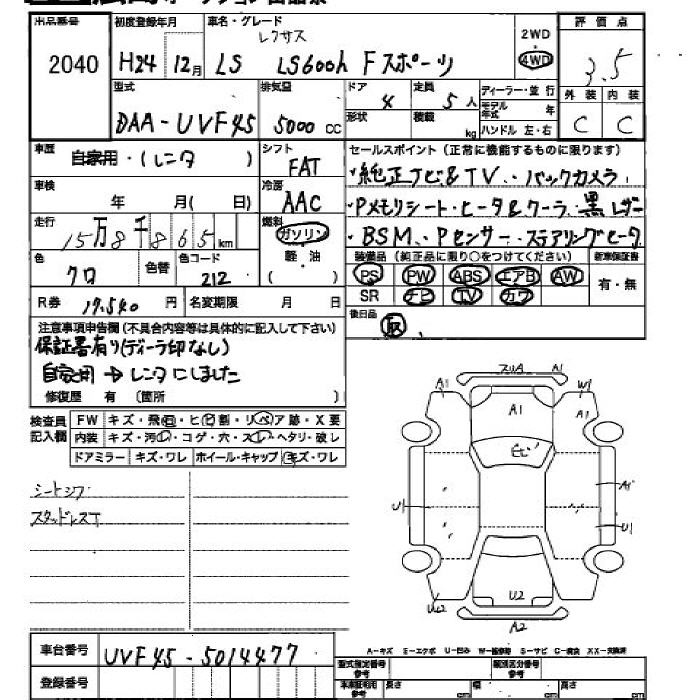 出品番号 初度登録年月 車名・グレード 評価点
レクサス 2WD
2040 H24 12月 LS LS600h Fスポーツ 4WD 3.5
型式 排気量 ドア 定員 ディーラー・並行 外装 内装
4 5人 モデル年式 年
DAA-UVF45 5000 CC 形状 積載 kg ハンドル 左・右 C C
車歴 シフト セールスポイント（正常に機能するものに限ります）
自家用・(レンタ ) FAT
・純正ナビ&TV・・バックカメラ
車検 年 月( 日) 冷房 AAC
・Pメモリシート・ヒータ&クーラ 黒レザー
走行 15万8千865km 燃料 ガソリン
・BSM・Pセンサー・ステアリングヒータ
軽・油
色 クロ 色替 色コード 212 ( )
装備品（純正品に限り○をつけてください） 新車保証書
PS PW ABS エアB AW 有・無
SR ナビ TV カワ
R券 17,540 円 名変期限 月 日
後日品 取
注意事項申告欄（不具合内容等は具体的に記入して下さい）
保証書有り(ディーラ印なし)
自家用→レンタにしました
修復歴 有 （箇所 ）
検査員記入欄 FW キズ・飛石・ヒビ割・リペア跡・X要
内装 キズ・汚レ・コゲ・穴・スレ・ヘタリ・破レ
ドアミラー キズ・ワレ ホイール・キャップ キズ・ワレ
シートシワ
スタッドレスT
A1 A1 W1
A1
U1 A1
U1
U2 U2
A2
A-キズ S-エクボ U-凹み W-補修跡 S-サビ C-腐食 XX-交換済
車台番号 UVF45-5014477
登録番号
型式指定番号 参考 類別区分番号 参考
長さ cm 幅 cm 高さ cm